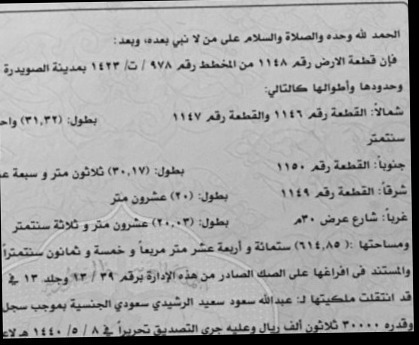 الحمد لله وحده والصلاة والسلام على من لا نبي بعده، وبعد:
فإن قطعة الارض رقم ١١٤٨ من المخطط رقم ٩٧٨ / ت/ ١٤٢٣ بمدينة الصويدرة
وحدودها وأطوالها كالتالي:
شمالاً: القطعة رقم ١١٤٦ والقطعة رقم ١١٤٧ بطول: (٣١,٣٢) واحد
سنتمتر
جنوباً: القطعة رقم ١١٥٠ بطول: (٣٠,١٧) ثلاثون متر و سبعة
شرقاً: القطعة رقم ١١٤٩ بطول: (٢٠) عشرون متر
غرباً: شارع عرض ٣٠م بطول: (٢٠,٠٣) عشرون متر و ثلاثة سنتمتر
ومساحتها :(٦١٤,٨٥) ستمائة و أربعة عشر متر مربعاً و خمسة و ثمانون سنتمتراً
والمستند فى افراغها على الصك الصادر من هذه الإدارة برقم ٣٩ / ٦٣ وجلد ١٣ في
قد انتقلت ملكيتها لـ: عبدالله سعود سعيد الرشيدي سعودي الجنسية بموجب سجل
وقدره ٣٠٠٠٠ ثلاثون ألف ريال وعليه جرى التصديق تحريراً في ٨ / ٥/ ١٤٤٠ هـ